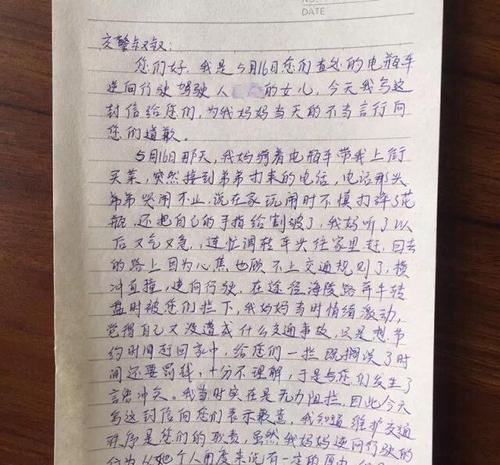 NO.
DATE
交警叔叔：
您们好，我是5月16日您们查处的电瓶车
逆向行驶驾驶人 的女儿，今天我写这
封信给您们，为我妈妈当天的不当言行向
您们道歉。
5月16日那天，我妈骑着电瓶车带我上街
买菜，突然接到弟弟打来的电话，电话那头
弟弟哭闹不止，说在家玩闹时不慎打碎了花
瓶，还把自己的手指给割破了，我妈听了以
后又气又急，连忙调转车头往家里赶，回去
的路上因为心焦也顾不上交通规则了，横
冲直撞，逆向行驶，在途径海陵路 转
盘时被您们拦下，我妈妈当时情绪激动，
觉得自己又没造成什么交通事故，只是想节
约时间赶回家中，给您们一拦既搁误了时
间还要罚钱，十分不理解，于是与您们发生了
言语冲突。我当时实在是无力阻拦，因此今天
写这封信向您们表示歉意，我知道维护交通
秩序是您们的职责，虽然我妈妈逆向行驶的
行为从她个人角度来说有一定的原由